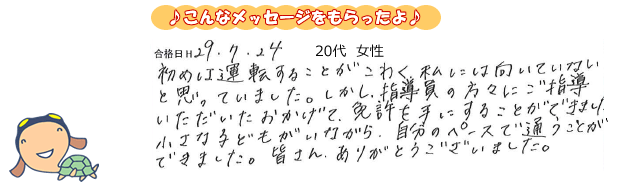 ♪こんなメッセージをもらったよ♪
合格日H29.7.24 20代 女性
初めは運転することがこわく私には向いていない
と思っていました。しかし、指導員の方々にご指導
いただいたおかげで、免許を手にすることができました。
小さな子どもがいながら、自分のペースで通うことが
できました。皆さん、ありがとうございました。